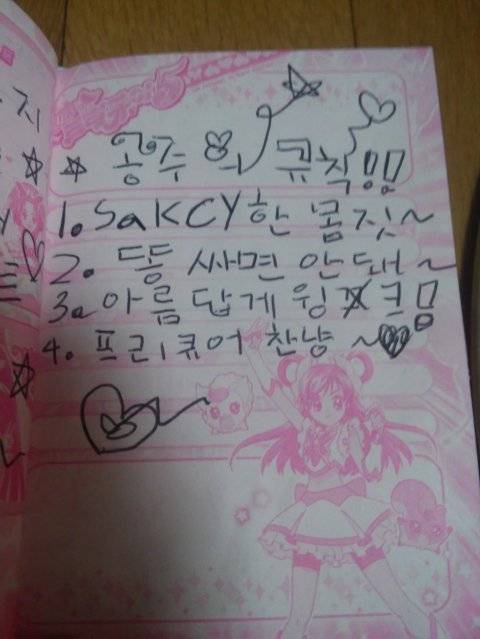 공주의 규칙!!
1. SaKCY한 몸짓~
2. 똥 싸면 안돼~
3. 아름답게 윙크!!
4. 프리큐어 찬양~